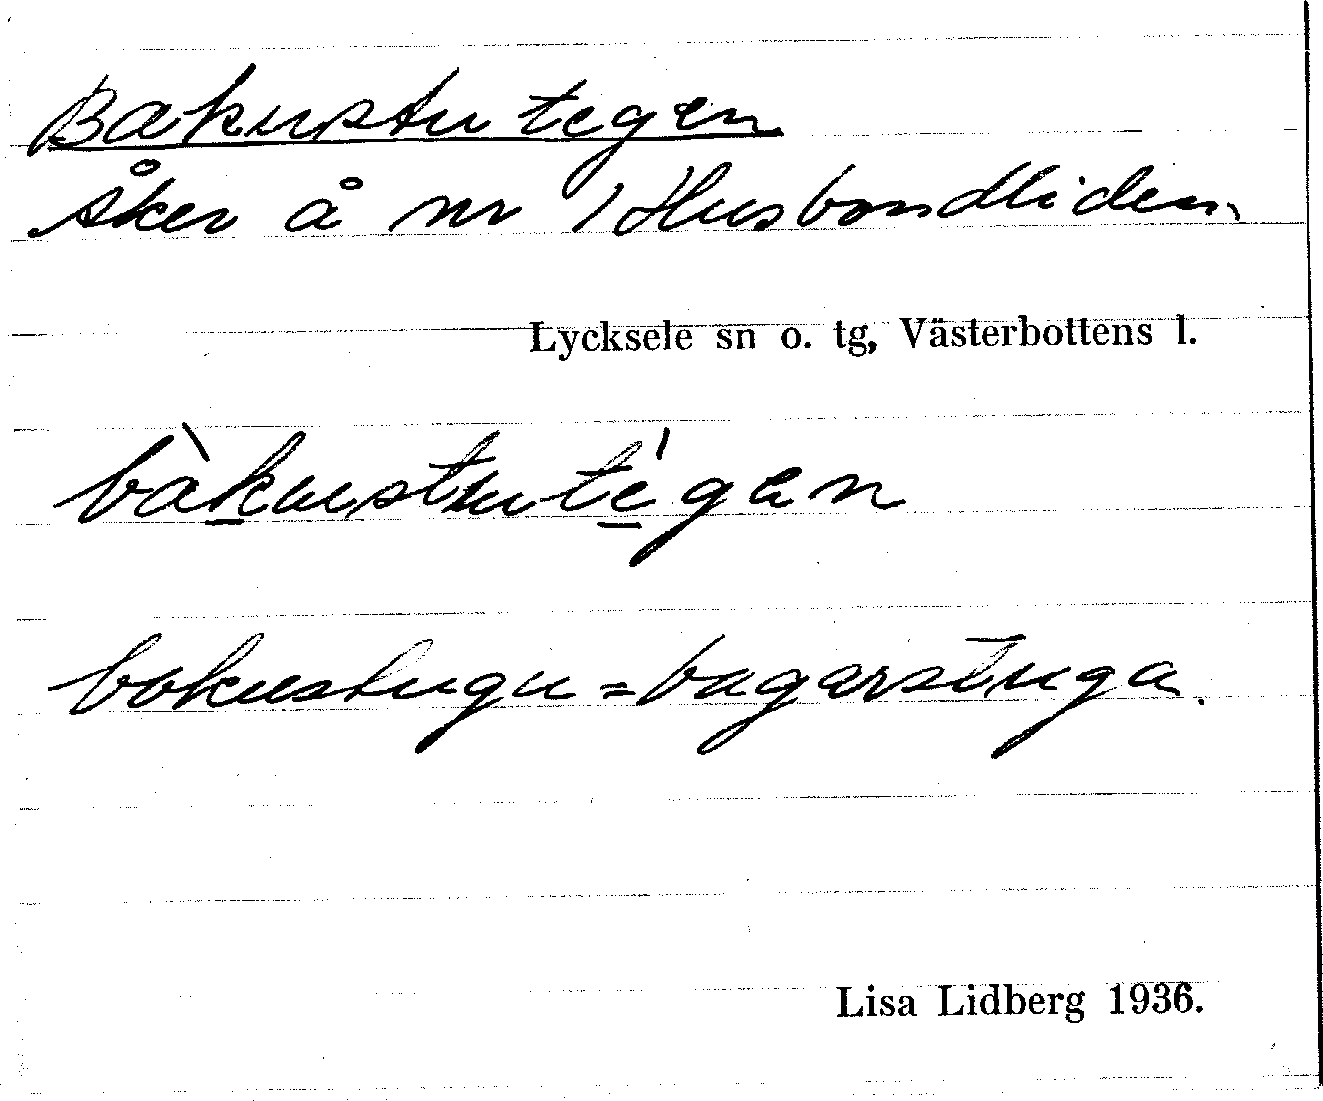 Bakustutegen
åker å nr 1 Husbondliden
Lycksele sn o. tg, Västerbottens l.
bàkustutégen
bakustugu = bagarstuga.
Lisa Lidberg 1936.